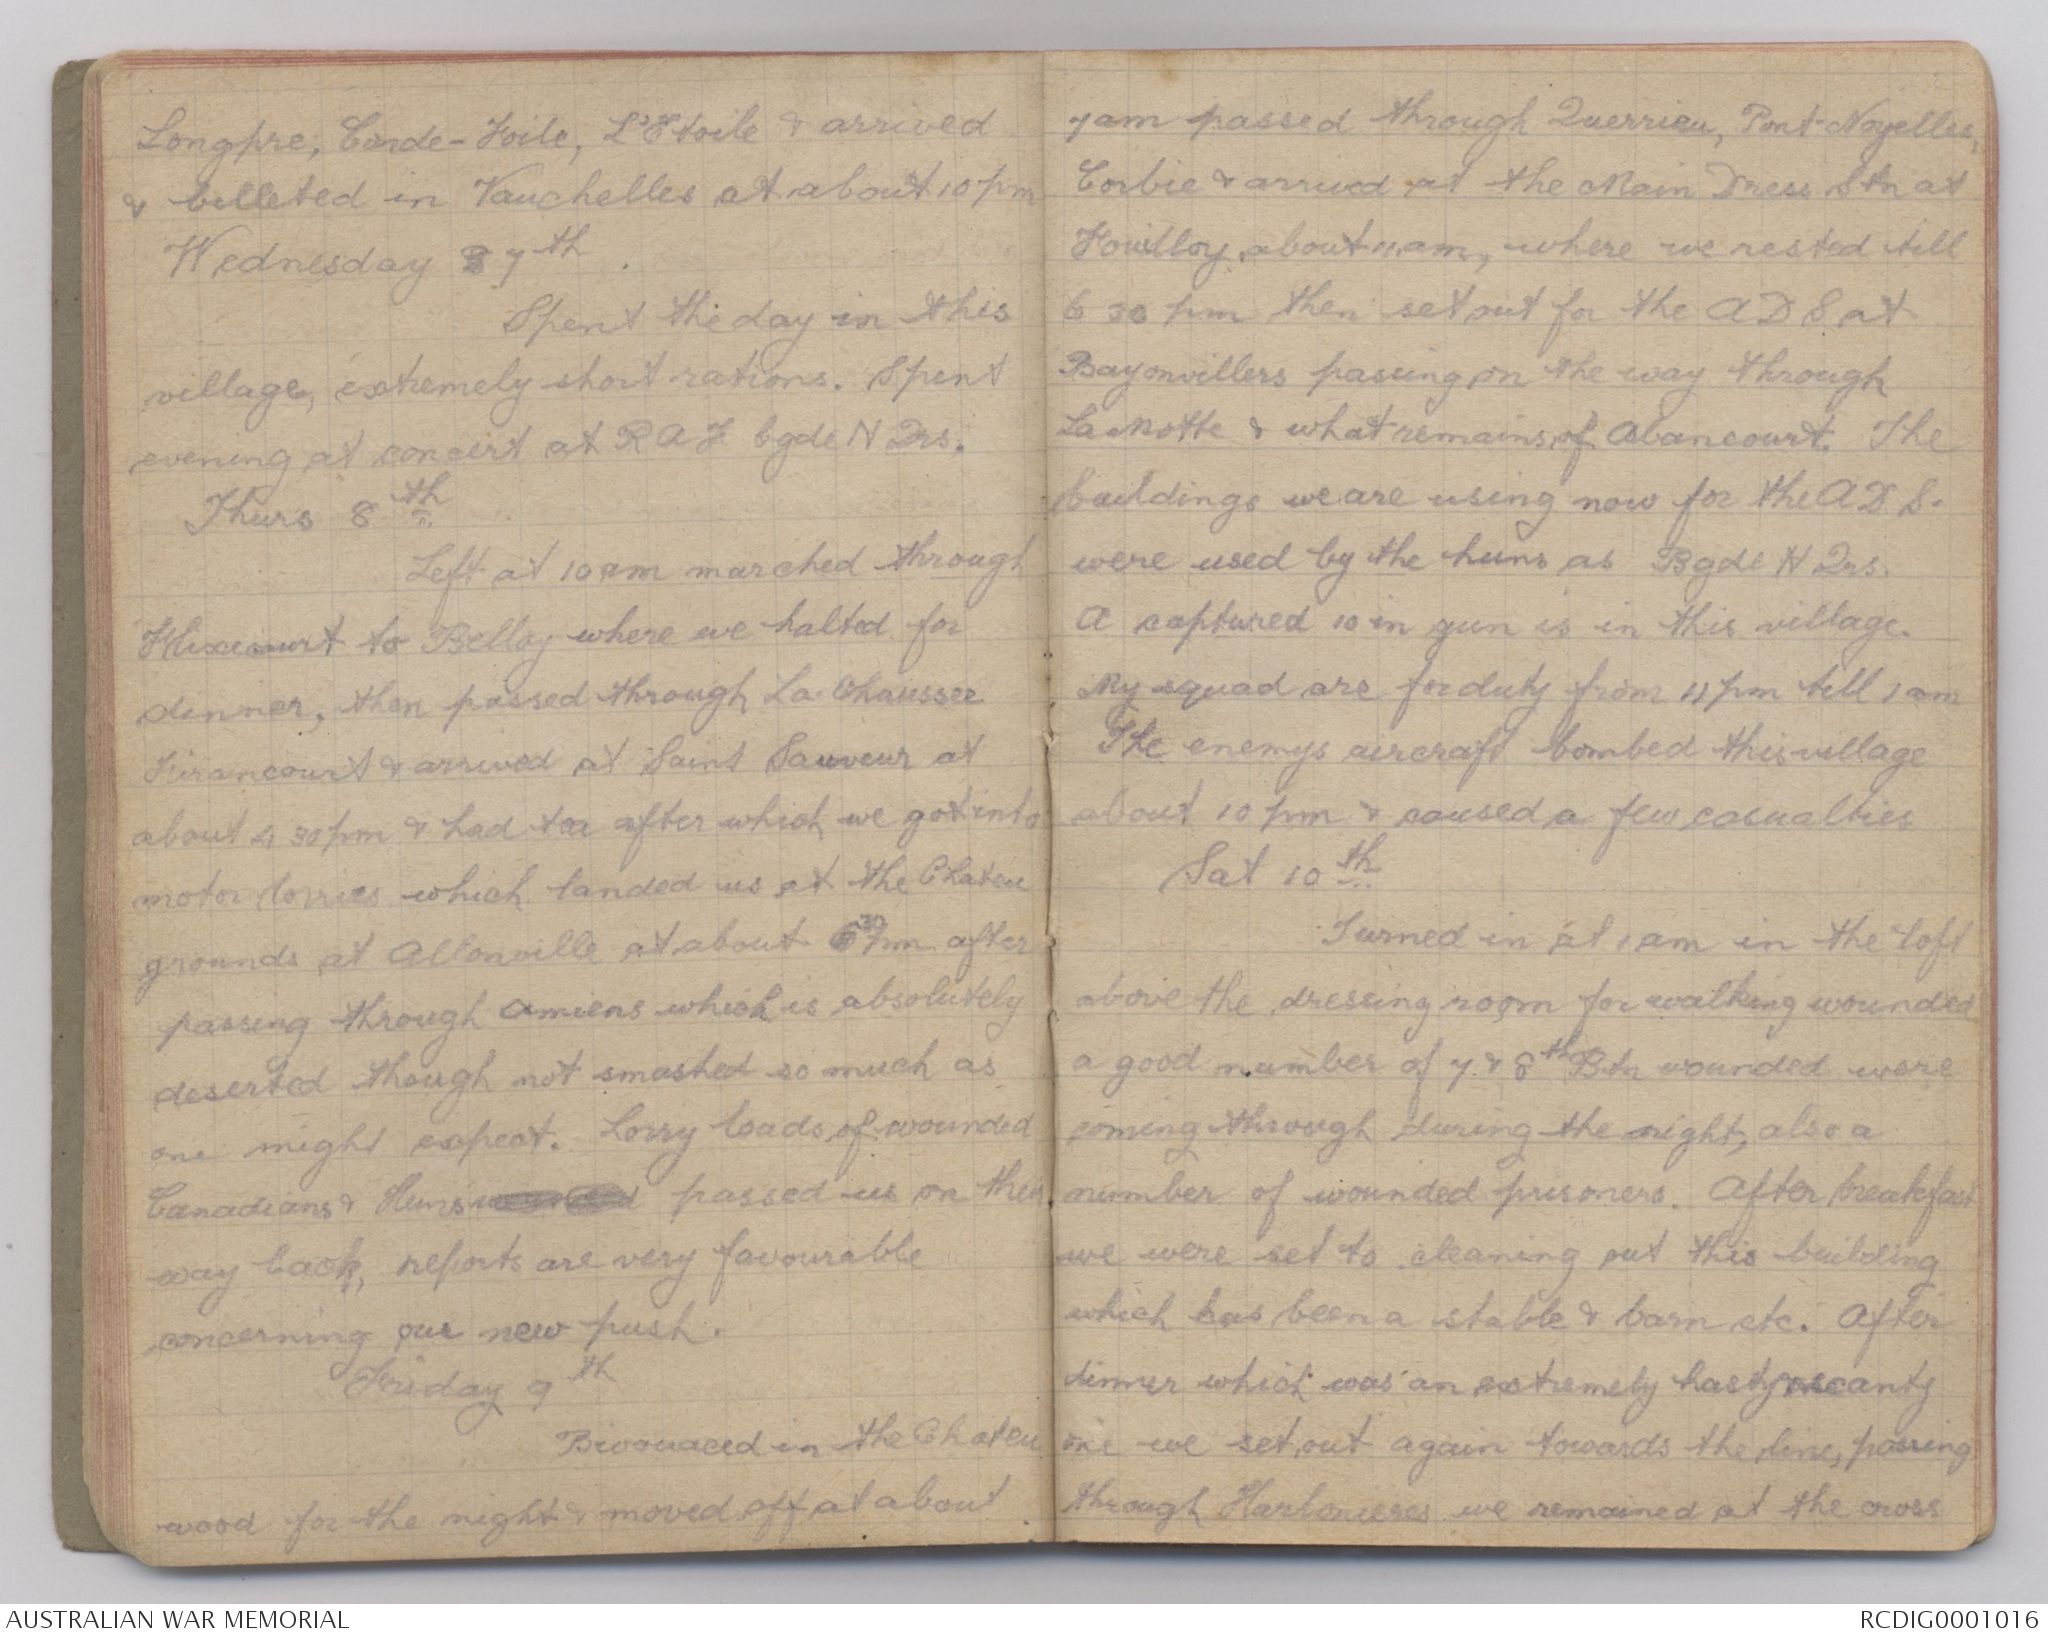 Longpre, Conde-Foile, L'Etoile & arrived
& billeted in Vauchelles at about 10 pm
Wednesday 7th
Spent the day in this
village, extremely short rations. Spent
evening at concert at R A F bgde H Qrs.
Thurs 8th
Left at 10 am marched through
Flixecourt to Belloy where we halted for
dinner, then passed through La Chaussee
Tirancourt & arrived at Saint Sauveur at
about 4 30 pm & had tea after which we got into
motor lorries which landed us at the Chateu
grounds at Allonville at about 6 30 pm after
passing through Amiens which is absolutely
deserted though not smashed so much as
one might expect. Lorry loads of wounded
Canadians & Huns passed us on their
way back, reports are very favourable
concerning our new push.
Friday 9th
Bivouaced in the Chateu
wood for the night & moved off at about
7 am passed through Querrieu, Pont-Noyelles,
Corbie & arrived at the Main Dress Stn at
Fouilloy about 11 am, where we rested till
6 30 pm then set out for the A D S at
Bayonvillers passing on the way through
La Motte & what remains of Abancourt. The
buildings we are using now for the A D S.
were used by the huns as Bgde H Qrs.
A captured 10 in gun is in this village.
My squad are for duty from 11 pm till 1 am
The enemys aircraft bombed this village
about 10 pm & caused a few casualties
Sat 10th
Turned in at 1 am in the loft
above the dressing room for walking wounded
a good number of 7 & 8th Btn wounded were
coming through during the night, also a
number of wounded prisoners. After breakfast
we were set to cleaning out this building
which has been a stable & barn etc. After
dinner which was an extremely hasty scanty
one we set out again towards the line, passing
through Harbonieres we remained at the cross
AUSTRALIAN WAR MEMORIAL
RCDIG0001016